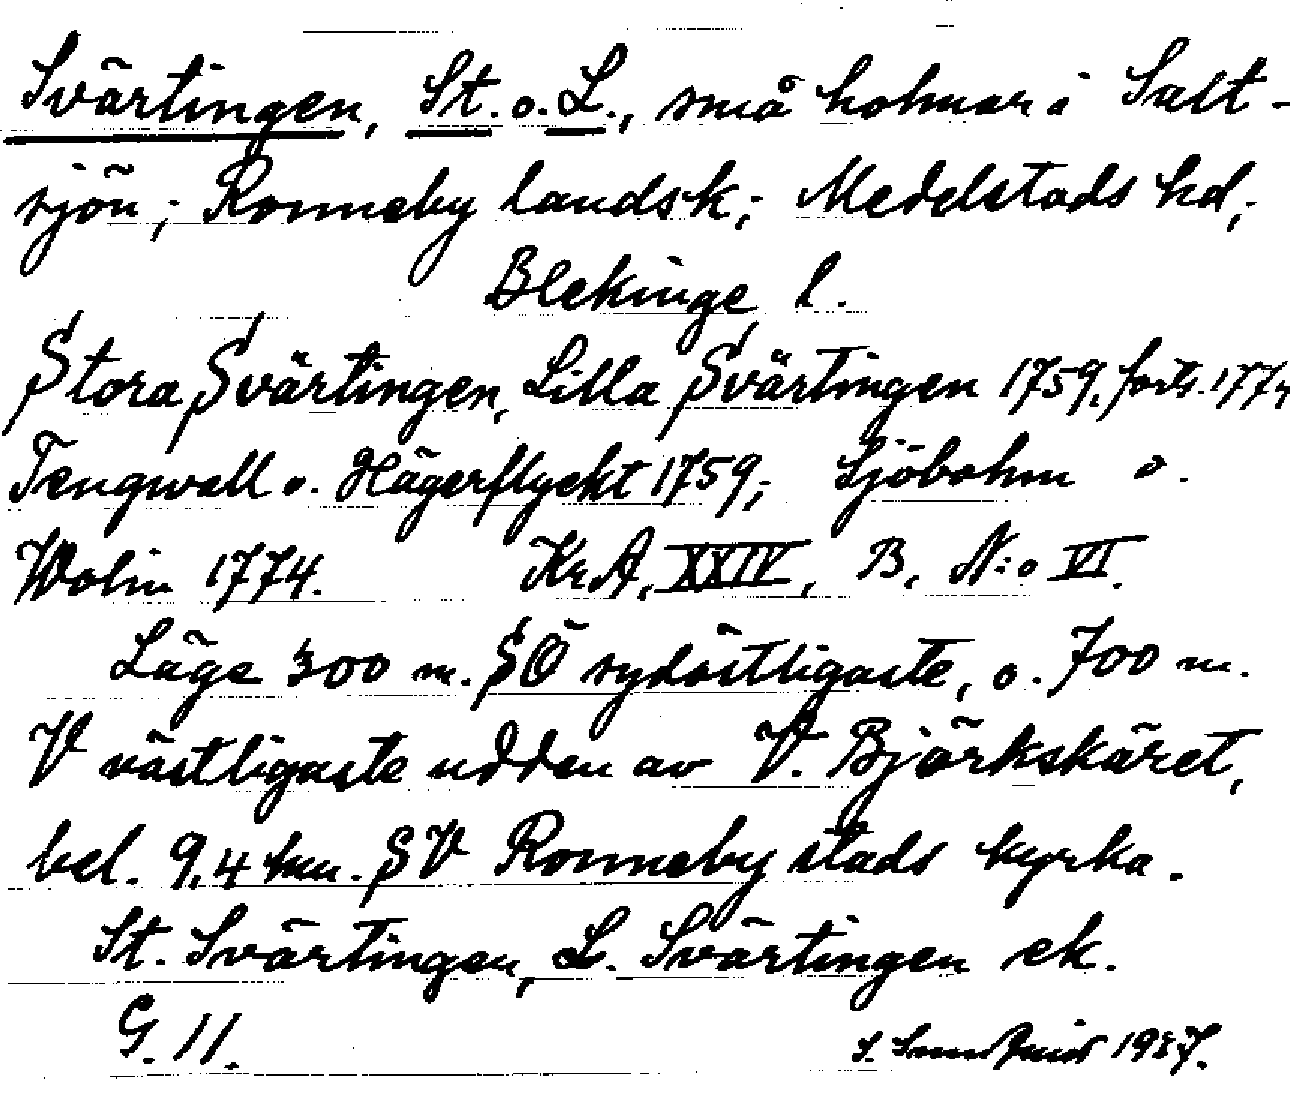 Svärtingen, St. o. L., små holmar i Salt-
sjön; Ronneby landsk; Medelstads hd,
Blekinge l.
Stora Svärtingen, Lilla Svärtingen 1759, forts. 1774
Tengwall o. Hägerflyckt 1759; Sjöbohm o.
Wolin 1774. KrA, XXIV, B, N:o VI.
Läge 300 m. SÖ sydöstligaste, o. 700 m.
V västligaste udden av V. Björkskäret,
bel. 9,4 km. SV Ronneby stads kyrka.
St. Svärtingen, L. Svärtingen ek.
G. 11.